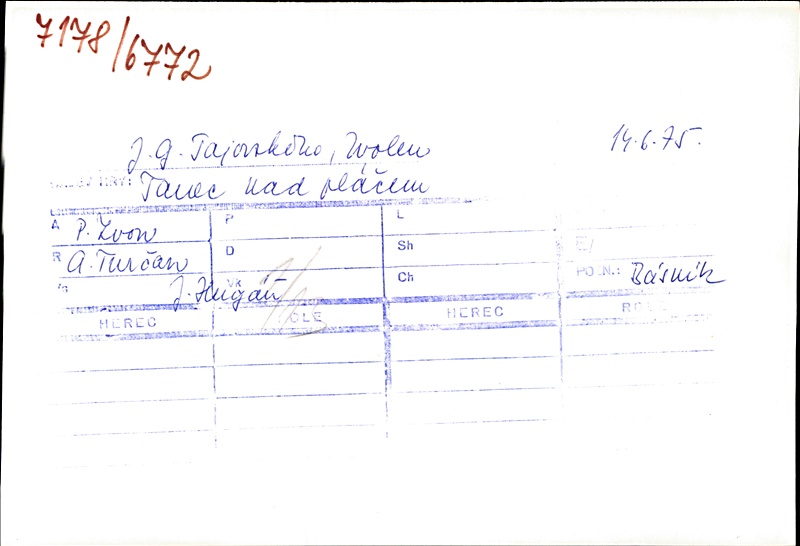 7178/6772
J. G. Tajovského, Zvolen 14.6.75.
HRY: Tanec nad pláčem
A P. Zvon P L
R A. Turčán D Sh E/
J. Hugáň VK Ch POZN.: Básnik
HEREC ROLE HEREC ROLE